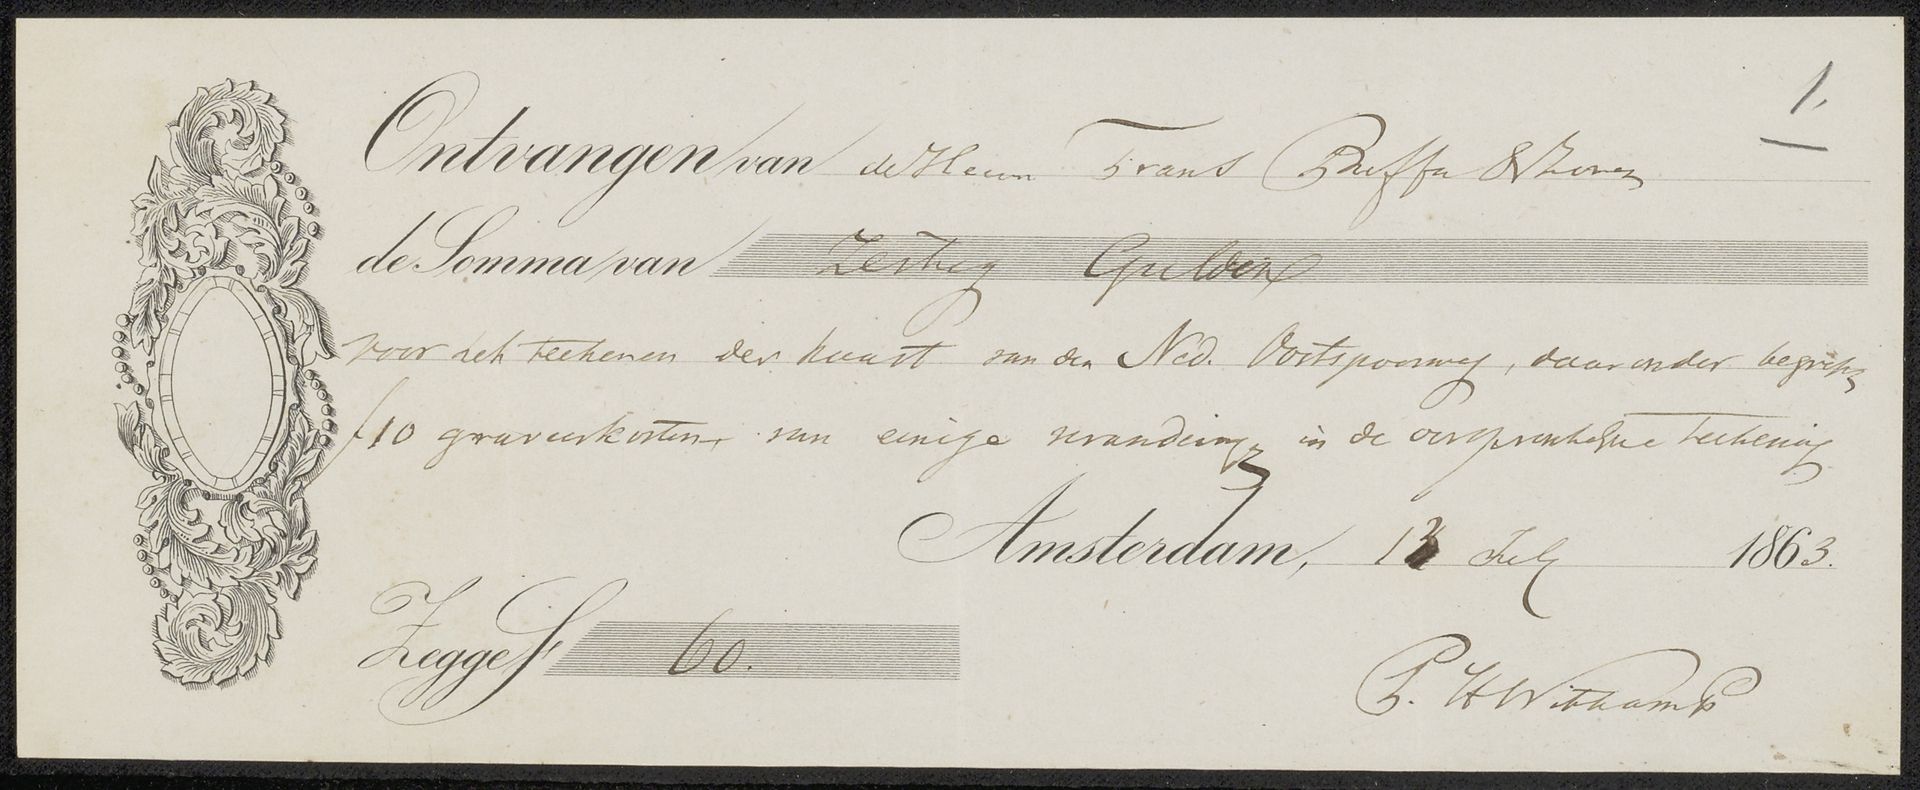 1.
Ontvangen van de Heeren Frans Buffa & Zonen
de Somma van Zestig Gulden
voor het teekenen der kaart van den Ned. Oostspoorweg, daaronder begrepen
f 10 graveerkosten van eenige verandering in de oorspronkelijke teekening
Amsterdam, July 1863.
Zegge f 60.
P. H Witkamp